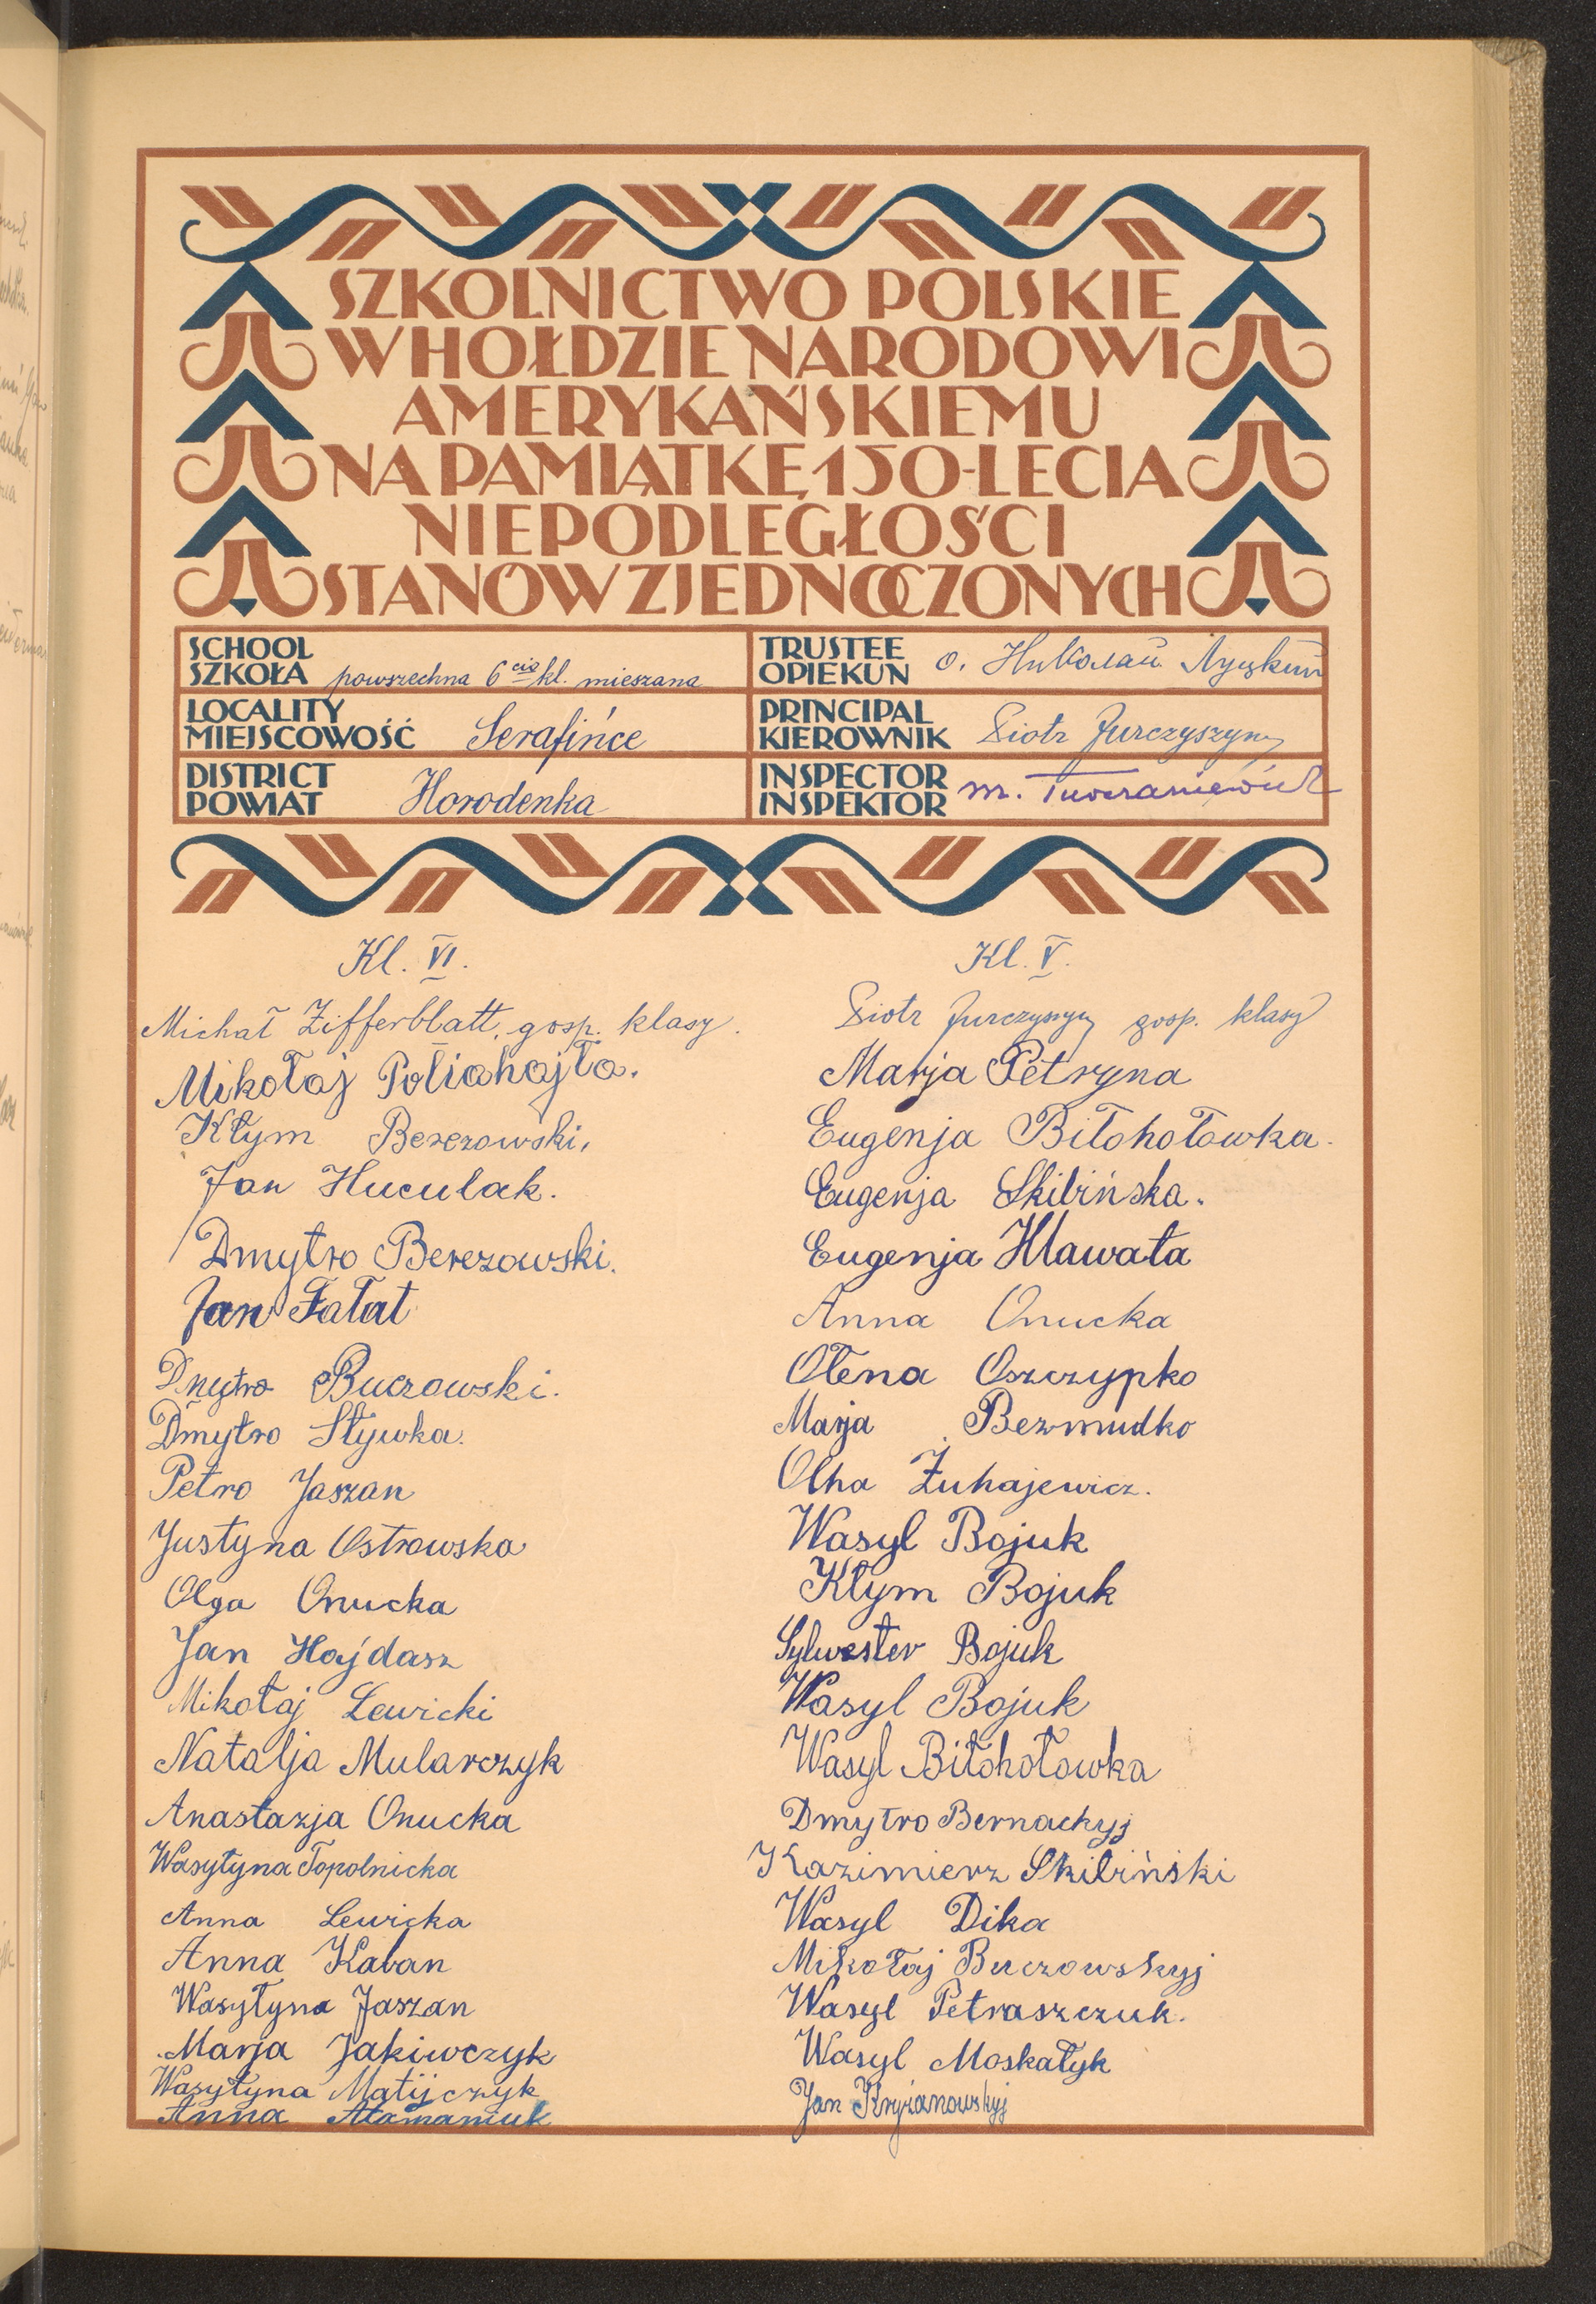 SZKOLNICTWO POLSKIE
W HOŁDZIE NARODOWI
AMERYKAŃSKIEMU
NA PAMIĄTKĘ 150-LECIA
NIEPODLEGŁOŚCI
STANÓW ZJEDNOCZONYCH
SCHOOL
SZKOŁA powszechna 6 cio kl. mieszana
TRUSTEE
OPIEKUN о. Николай Луцкий
LOCALITY
MIEJSCOWOŚĆ Serafińce
PRINCIPAL
KIEROWNIK Piotr Jurczyszyn
DISTRICT
POWIAT Horodenka
INSPECTOR
INSPEKTOR M.
Kl. VI.
Michał Zifferblatt, gosp. klasy.
Mikołaj Poliahajło.
Kłym Berezowski,
Jan Huculak.
Dmytro Berezowski.
Jan Fałat
Dmytro Buczowski.
Dmytro Stywka.
Petro Jaszan
Justyna Ostrowska
Olga Onucka
Jan Hajdasz
Mikołaj Lewicki
Natalja Mularczyk
Anastazja Onucka
Wasyłyna Topolnicka
Anna Lewicka
Anna Kaban
Wasyłyna Jaszan
Marja Jakiwczyk
Wasyłyna Matijczyk
Anna Atamaniuk
Kl. V.
Piotr Jurczyszyn gosp. klasy
Marja Petryna
Eugenja Biłohołowka.
Eugenja Skibińska.
Eugenja Hławata
Anna Onucka
Ołena Oszczypko
Marja Bezmudko
Olha Żuhajewicz.
Wasyl Bojuk
Kłym Bojuk
Sylwester Bojuk
Wasyl Bojuk
Wasyl Biłohołowka
Dmytro Bernackyj
Kazimierz Skibiński
Wasyl Dika
Mikołaj Buczowskyj
Wasyl Petraszczuk.
Wasyl Moskałyk
Jan Kryżanowskyj